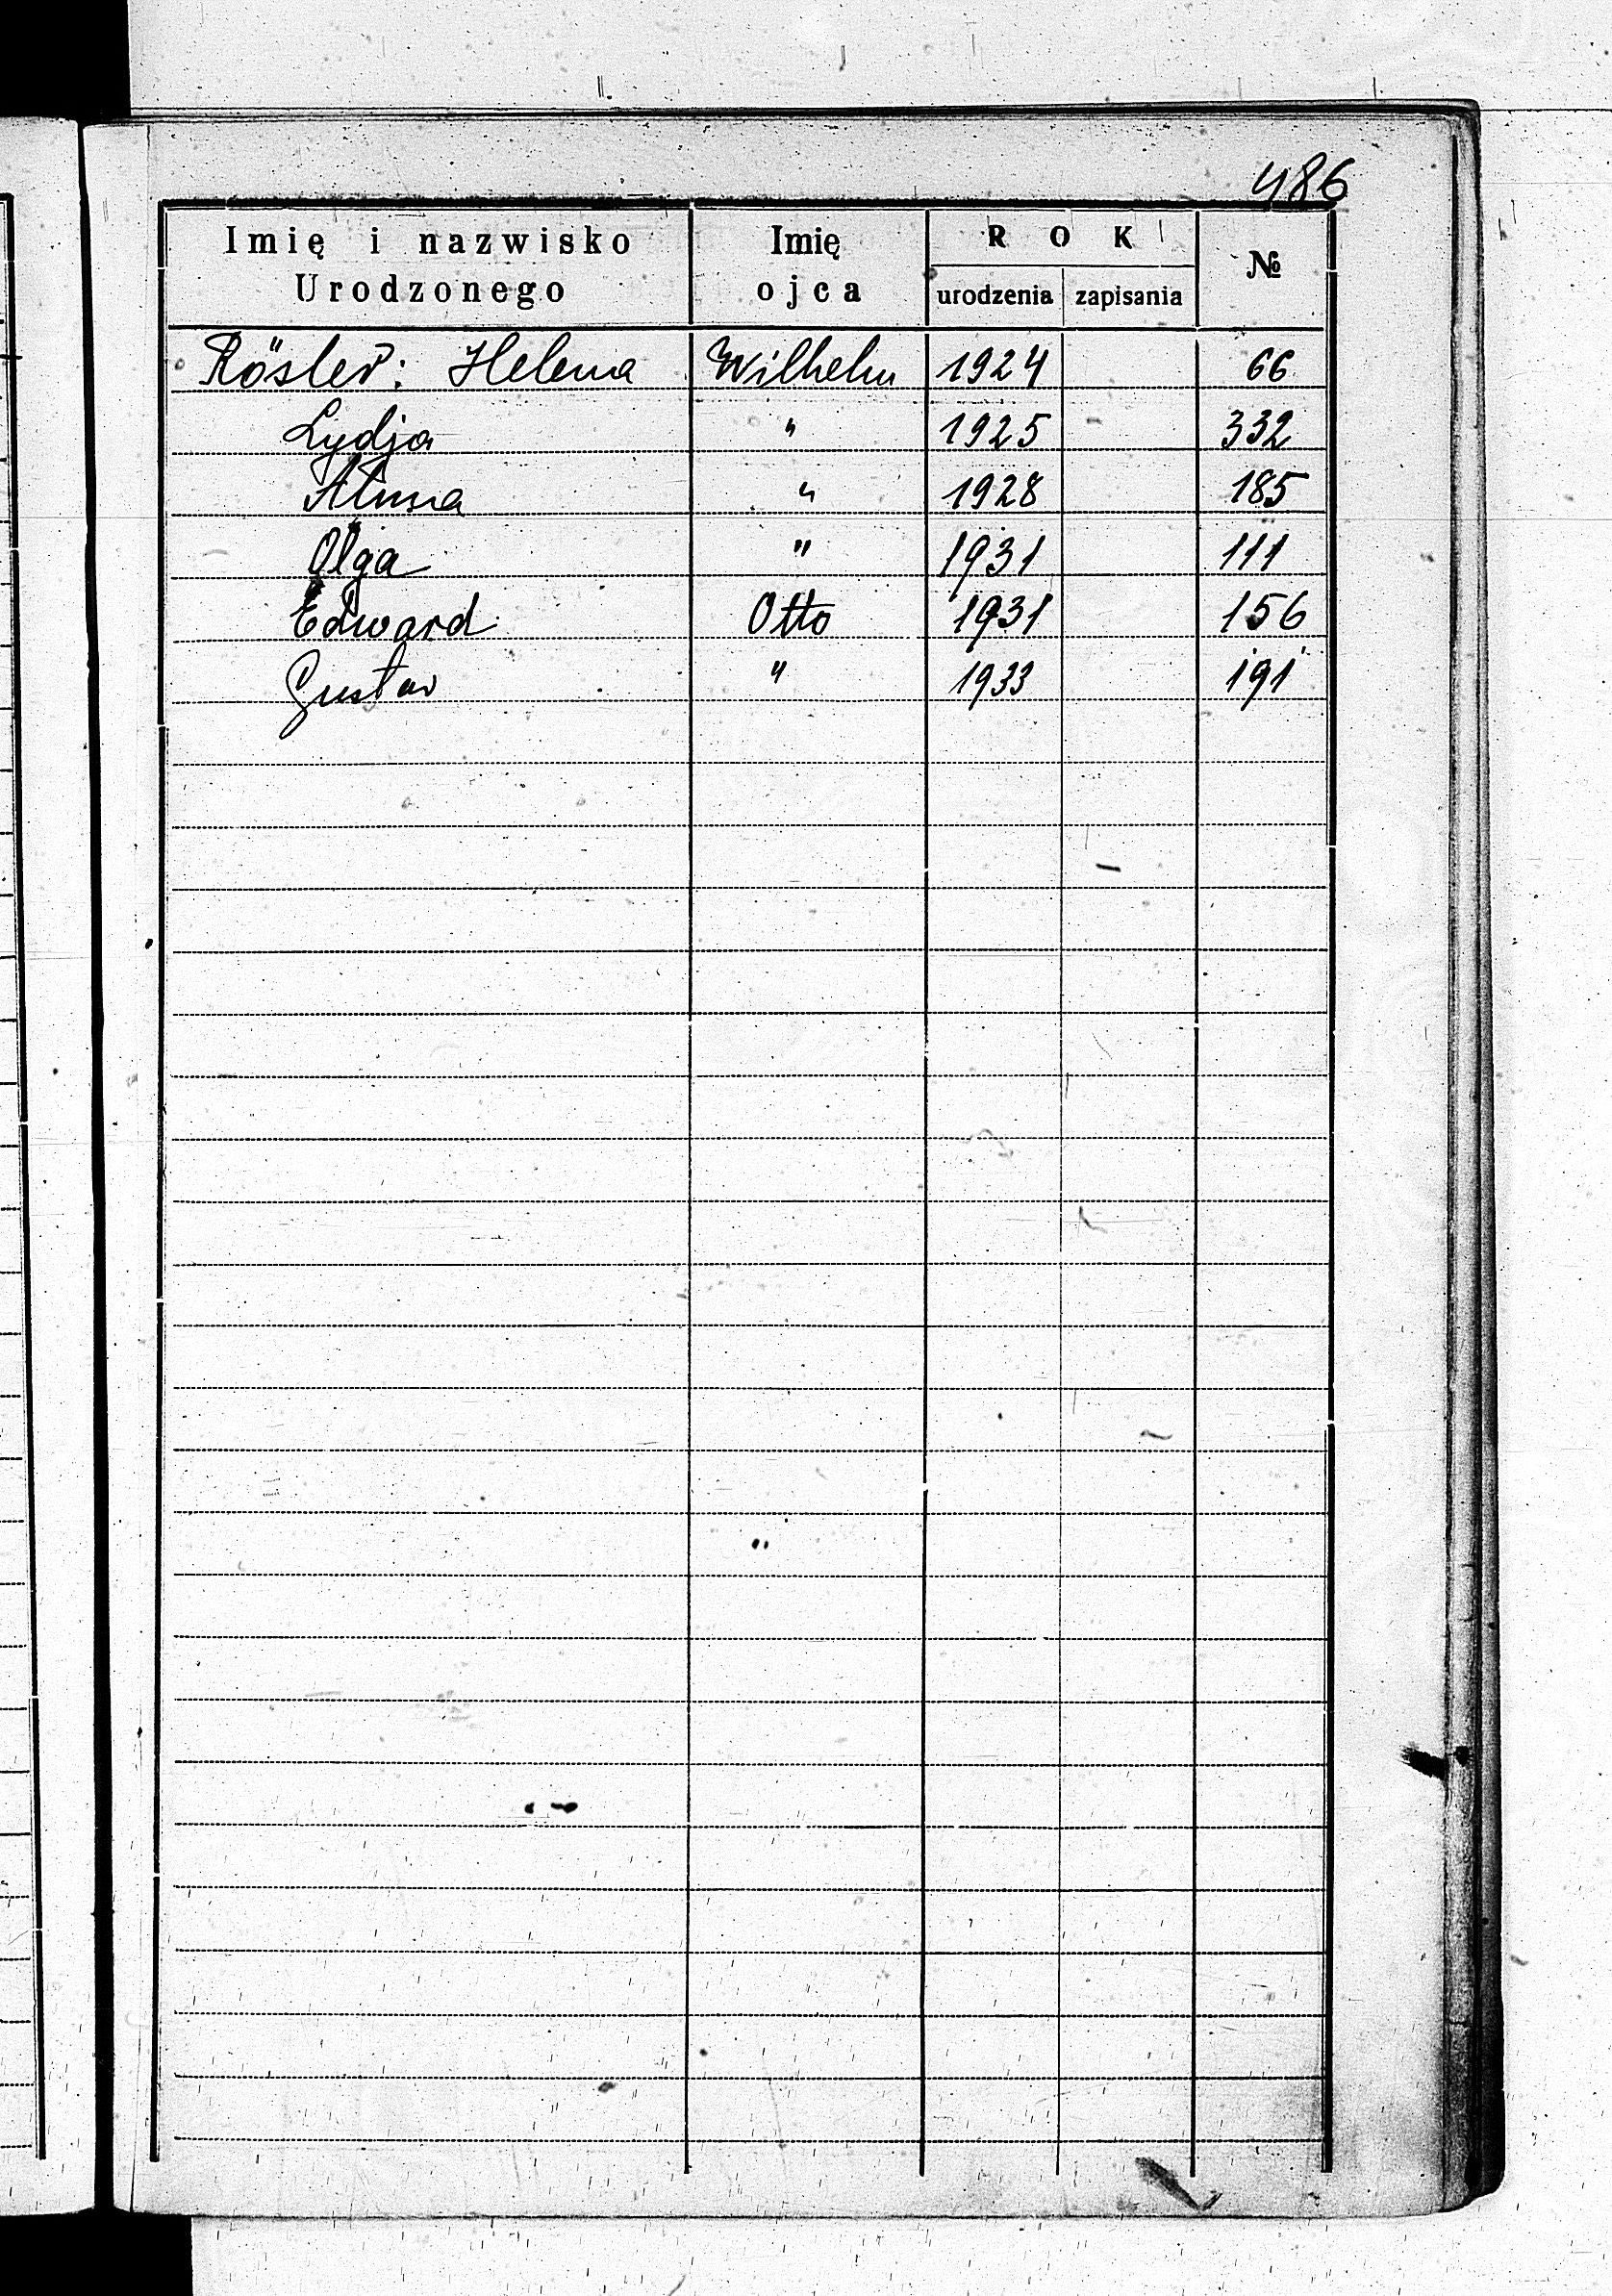 486
Imię i nazwisko Urodzonego Imię ojca ROK urodzenia zapisania №
Rösler: Helena Wilhelm 1924 66
Lydja " 1925 332
" 1928 185
Olga " 1931 111
Edward Otto 1931 156
Gustav " 1933 191